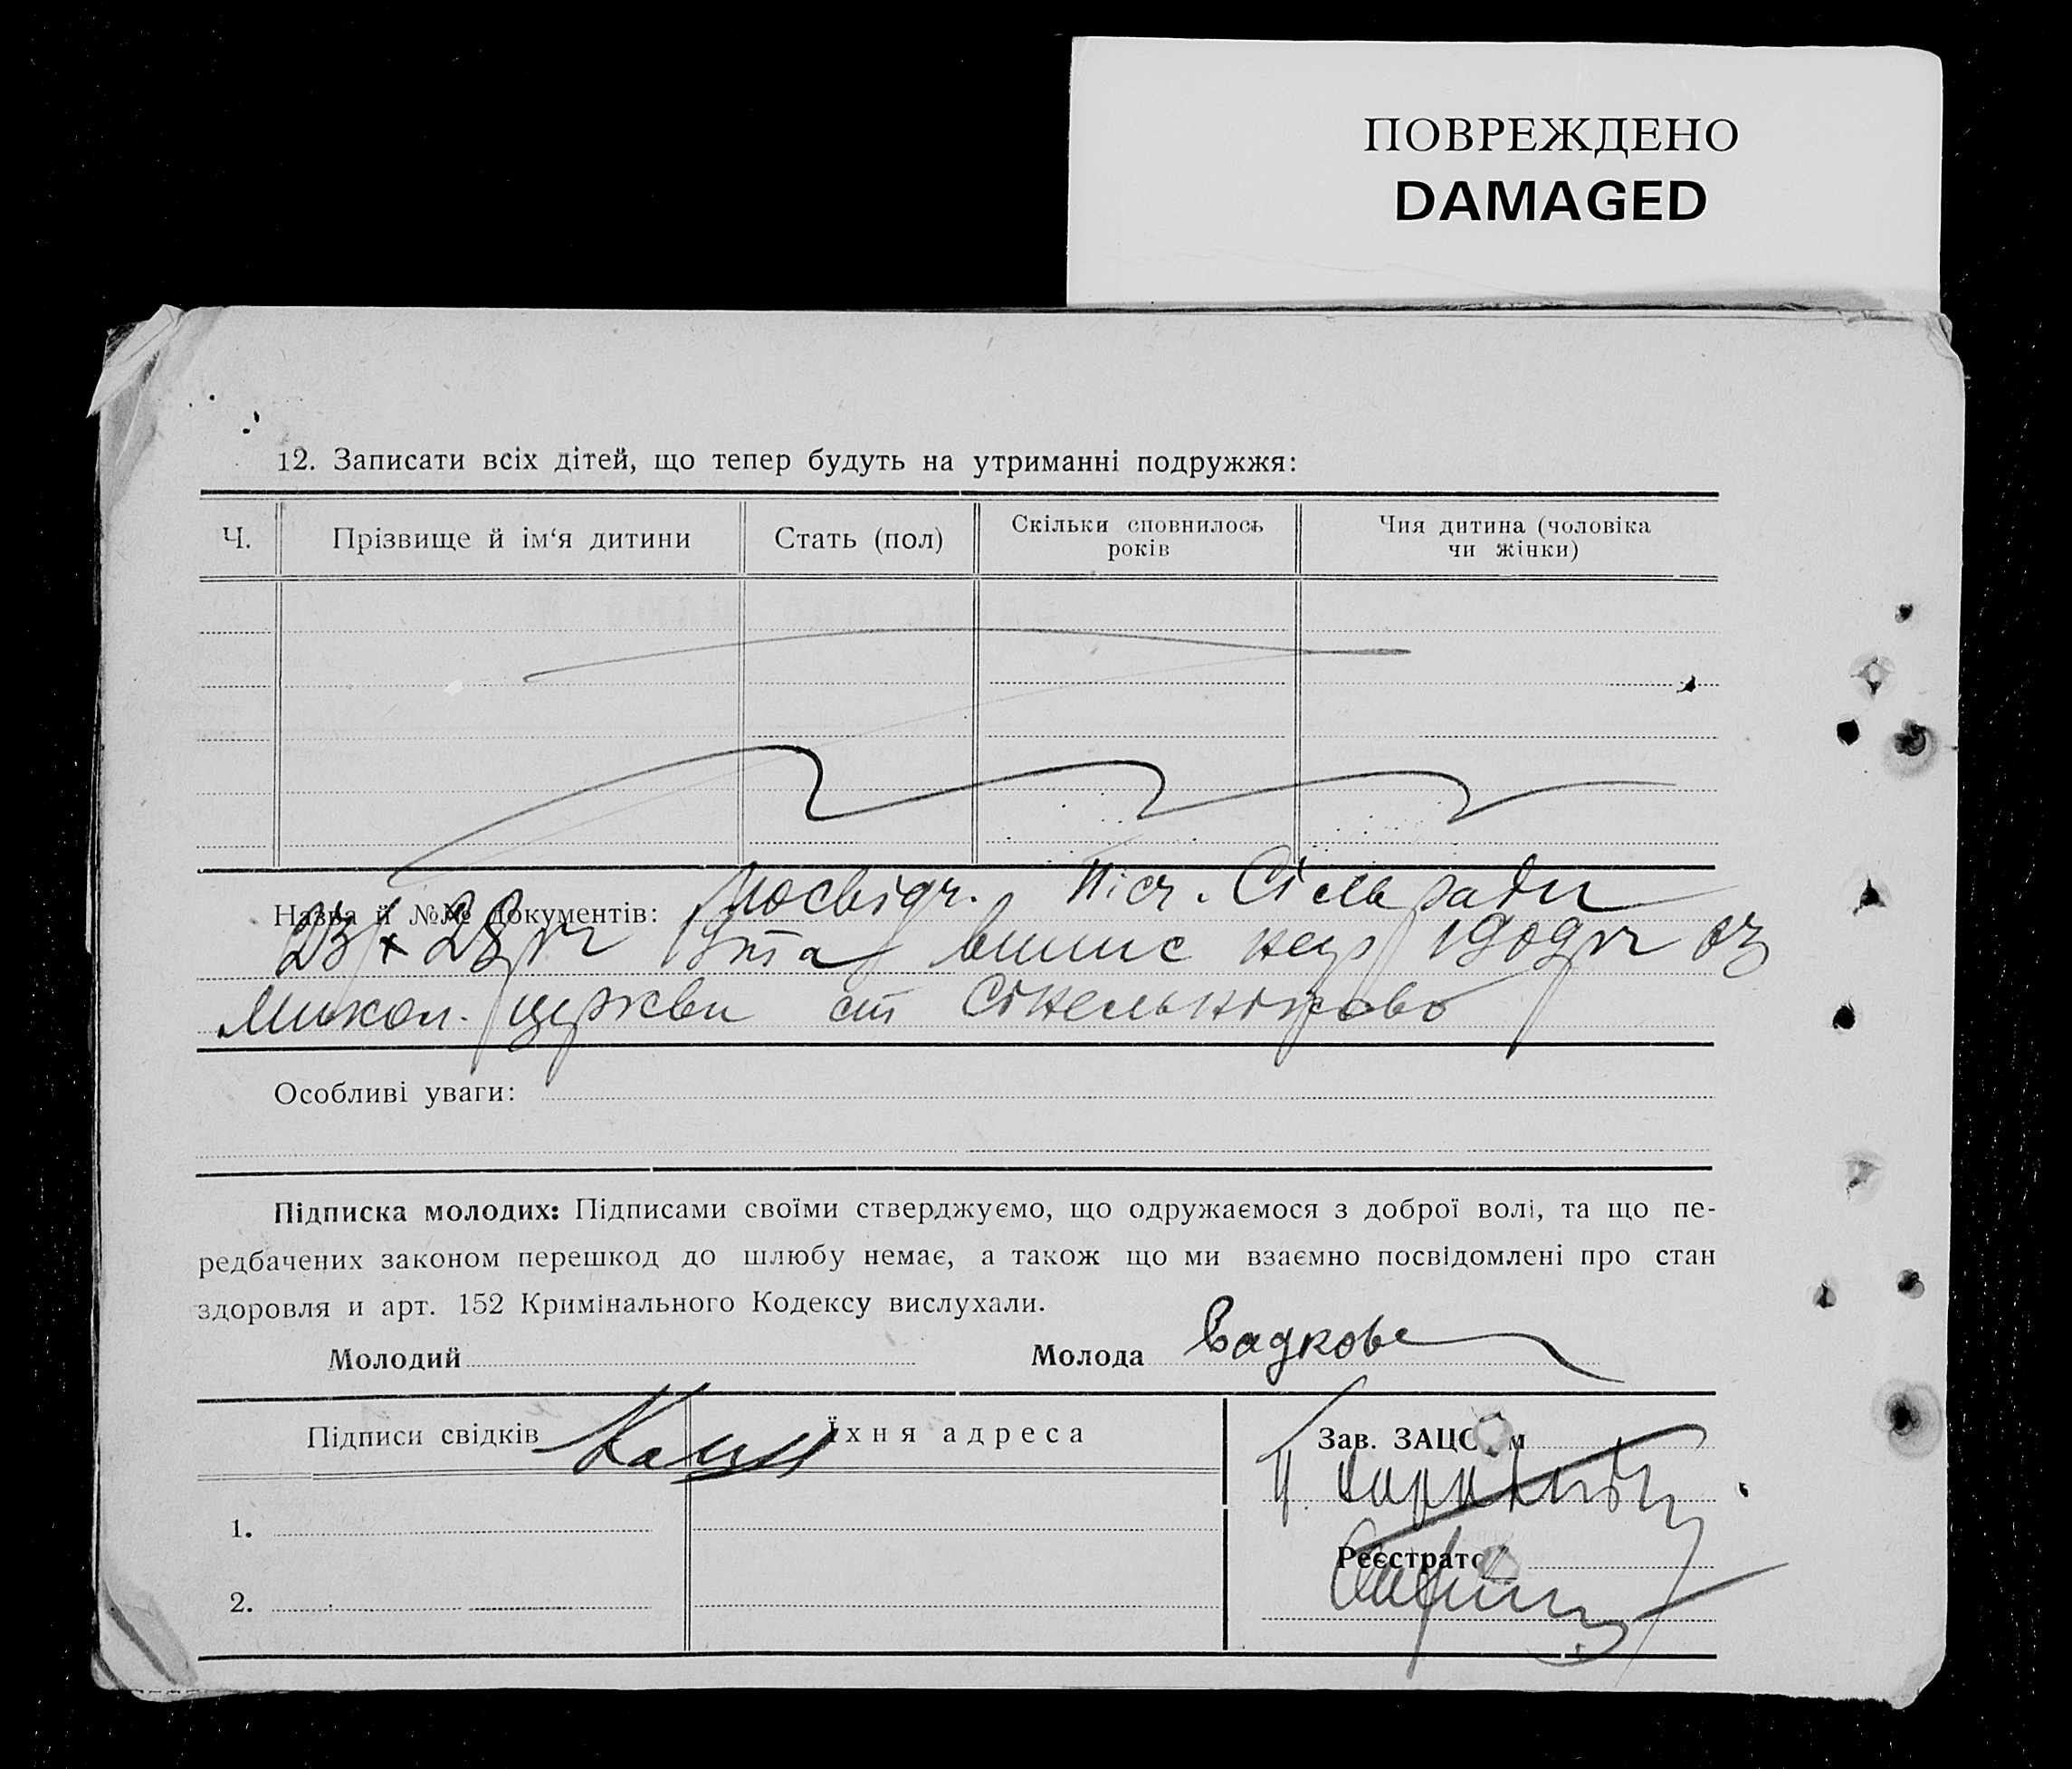 ПОВРЕЖДЕНО
DAMAGED
12. Записати всіх дітей, що тепер будуть на утриманні подружжя:
Ч.
Прізвище й ім‘я дитини
Стать (пол)
Скільки сповнилось років
Чия дитина (чоловіка чи жінки)
Назва й №№ документів: Посвідч. Піск. Сільради
23/X 28 рг та випис 1909 рг
Микол. церкви ст Сінельніково
Особливі уваги:
Підписка молодих: Підписами своїми стверджуємо, що одружаємося з доброї волі, та що пе-
редбачених законом перешкод до шлюбу немає, а також що ми взаємно посвідомлені про стан
здоровля и арт. 152 Кримінального Кодексу вислухали.
Молодий
Молода Садкова
Підписи свідків
Їхня адреса
Зав. ЗАЦСом
1.
Реєстратор
2.